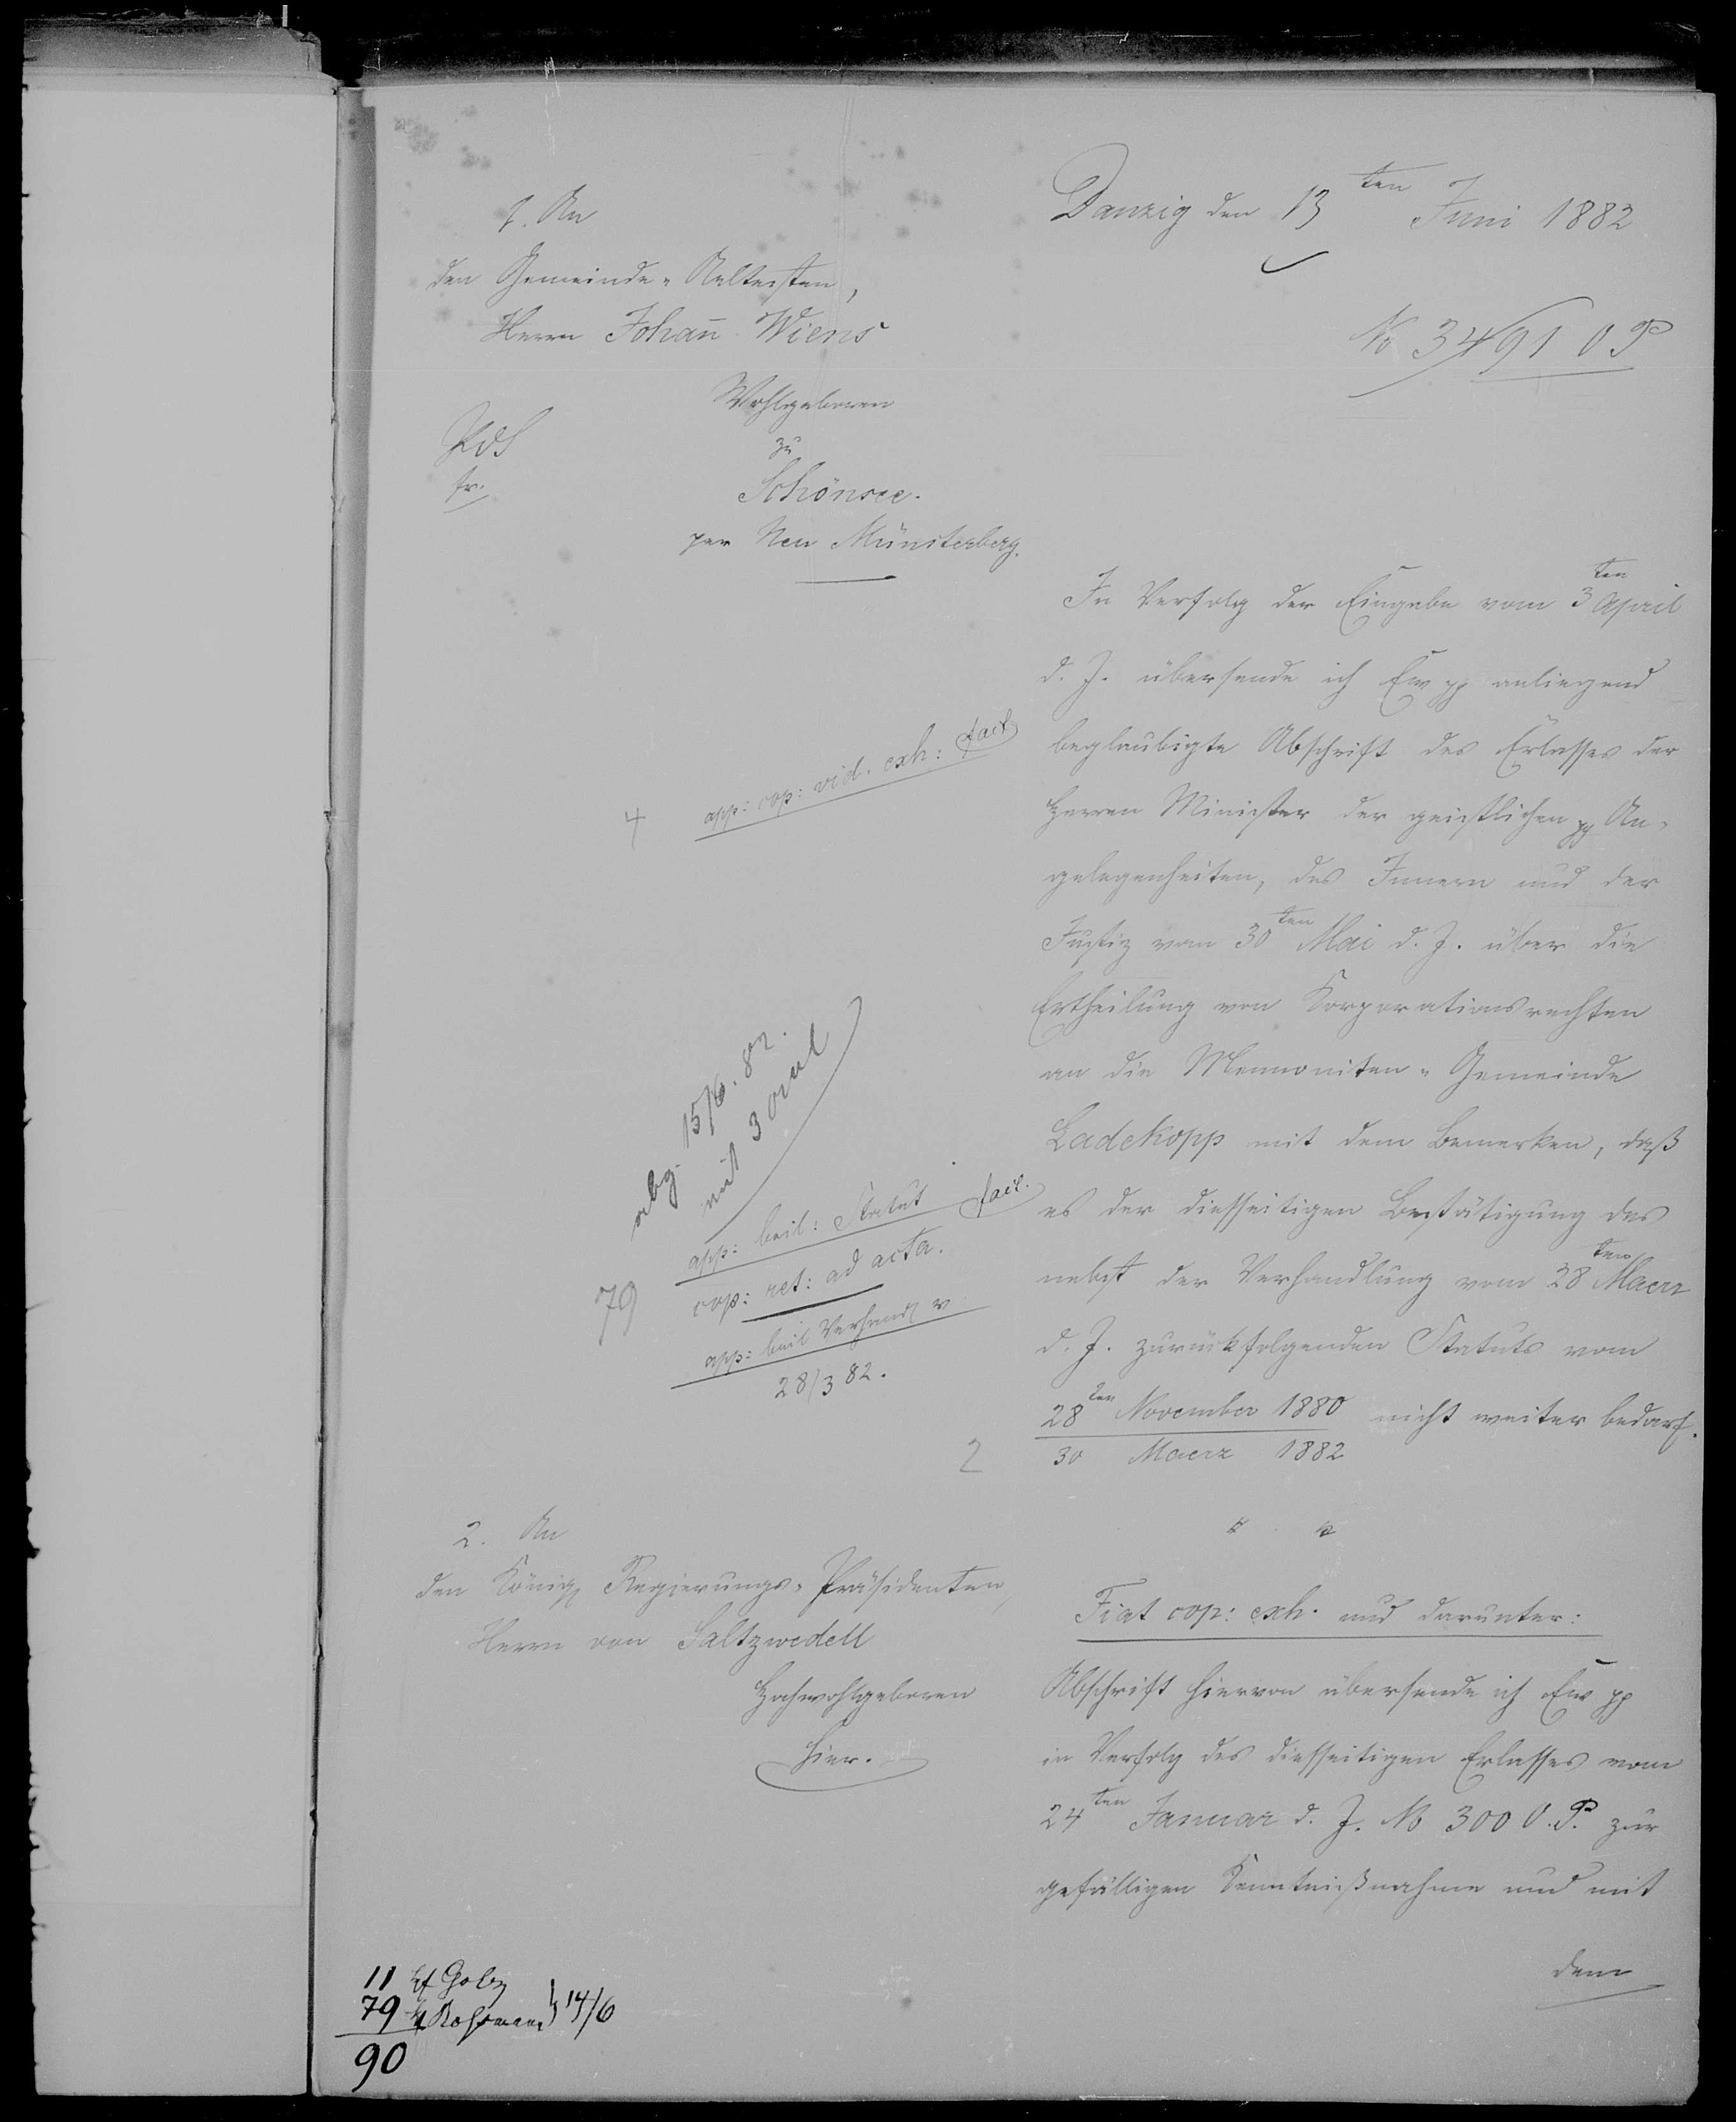 Danzig den 13ten Juni 1882
No 3491 O P
1. An
den Gemeinde-Aeltesten,
Herrn Johan̄ Wiens
Wohlgeboren
zu
Schönsee.
per Neu Münsterberg.
PdS
fr.
In Verfolg der Eingabe vom 3ten April
d. J. übersende ich Ew pp anliegend
beglaubigte Abschrift des Erlasses der
Herren Minister der geistlichen pp An-
gelegenheiten, des Innern und der
Justiz vom 30ten Mai d. J. über die
Ertheilung von Korporationsrechten
an die Mennoniten-Gemeinde
Ladekopp mit dem Bemerken, daß
es der diesseitigen Bestätigung des
nebst der Verhandlung vom 28ten Maerz
d. J. zurückfolgenden Statuts vom
28ten November 1880 nicht weiter bedarf.
30 Maerz 1882
4 app: cop: vid. exh: fact
abg. 15/6. 82.
mit 3
app: beil: Statut fact.
79 cop: ret: ad acta.
app: beil Verhandl v
28/3 82.
2
2. An
den Königl Regierungs-Präsidenten,
Herrn von Saltzwedell
Hochwohlgeboren
hier.
Fiat cop: exh. und darunter:
Abschrift hiervon übersende ich Ew pp
in Verfolg des diesseitigen Erlasses vom
24ten Januar d. J. No 300 O. P. zur
gefälligen Kenntnißnahme und mit
dem
11
79 14/6
90